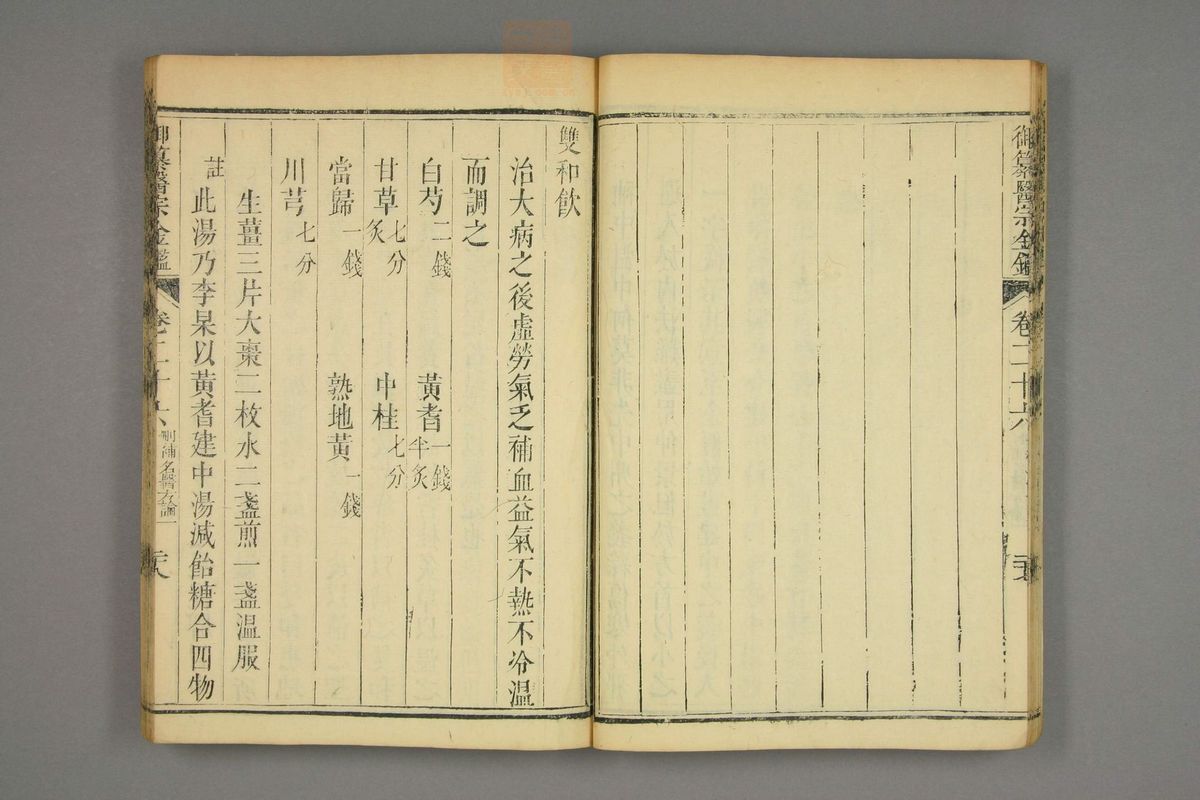 御纂醫宗金鑑
卷二十六
雙和飲
治大病之後虛勞氣乏補血益氣不熱不冷溫
而調之
白芍二錢 黃耆一錢半炙
甘草七分炙 中桂七分
當歸一錢 熟地黃一錢
川芎七分
生薑三片大棗二枚水二盞煎一盞溫服
註此湯乃李杲以黃耆建中湯減飴糖合四物
御纂醫宗金鑑 卷二十六 刪補名醫方論一